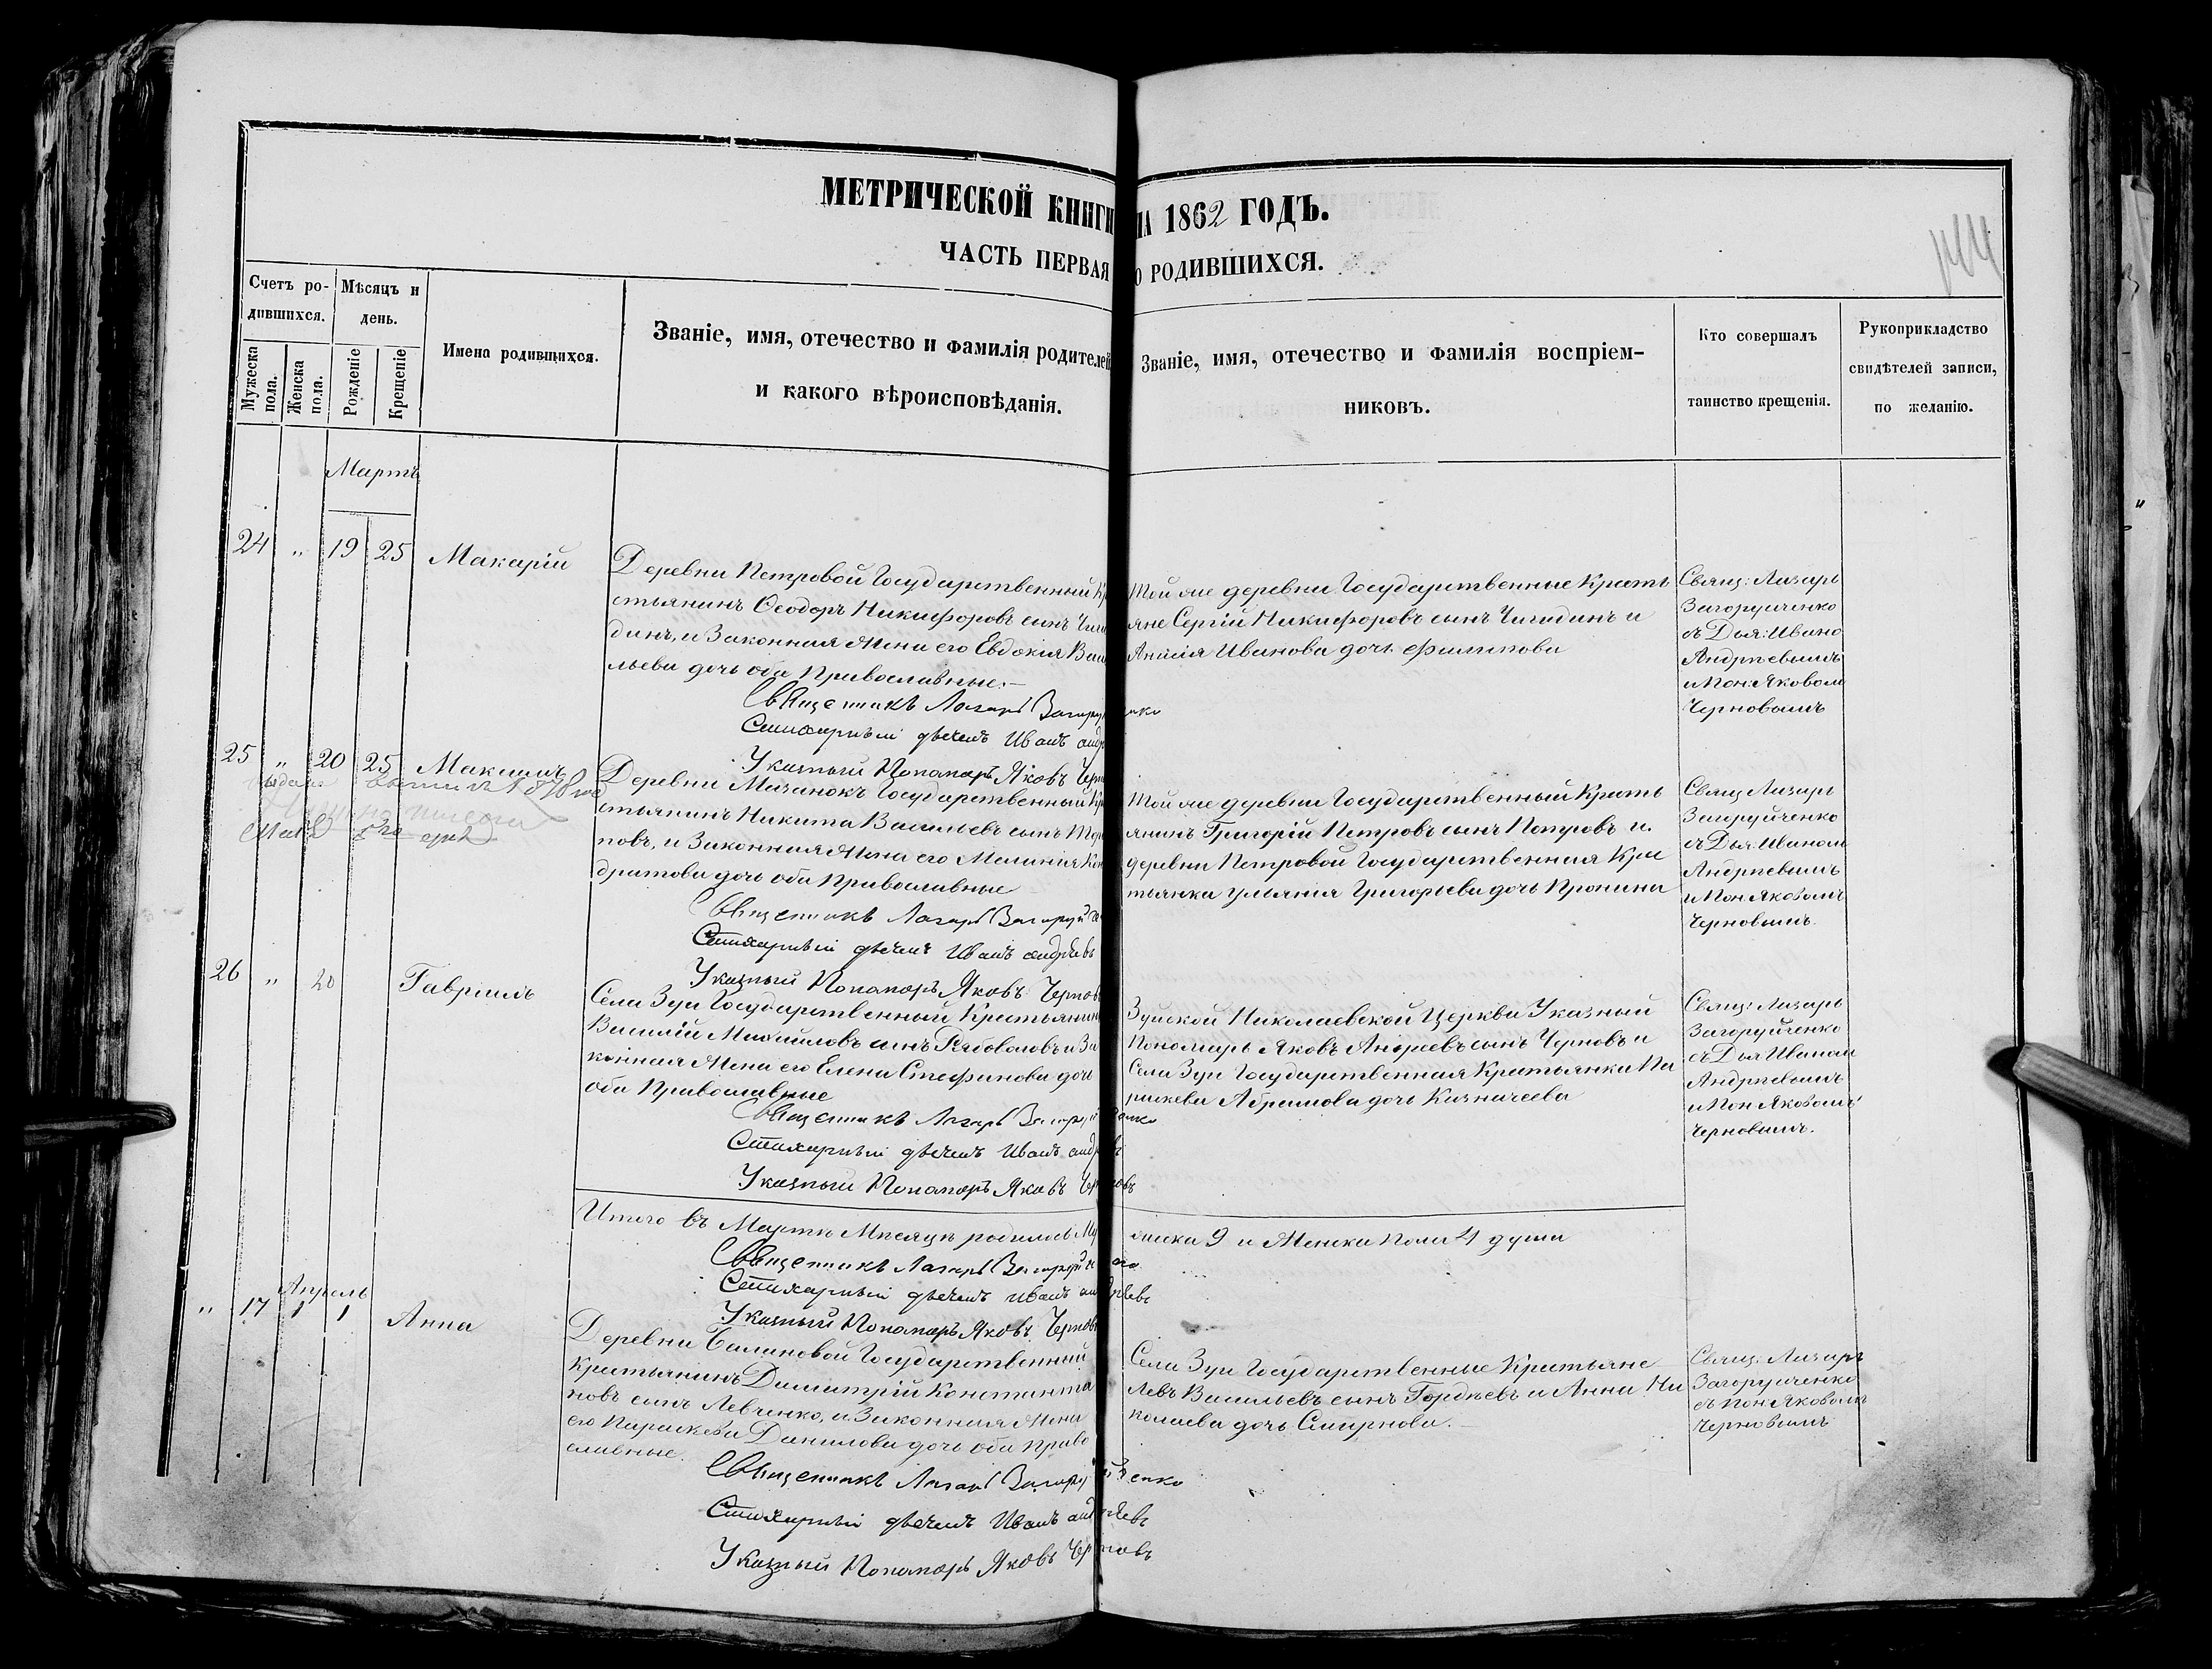 МЕТРИЧЕСКОЙ КНИГИ НА 1862 ГОДЪ.
ЧАСТЬ ПЕРВАЯ О РОДИВШИХСЯ.
144
Счетъ ро-
дившихся.
Мужеска
пола.
Женска
пола.
Мѣсяцъ и
день.
Рожденіе
Крещеніе
Имена родившихся.
Званіе, имя, отечество и фамилія родителей
и какого вѣроисповѣданія.
Званіе, имя, отечество и фамилія воспріем-
никовъ.
Кто совершалъ
таинство крещенія.
Рукоприкладство
свидѣтелей записи,
по желанію.
Мартъ
24 " 19 25 Макарій
Деревни Петровой Государственный Кр
стьянинъ Ѳеодоръ Никифоровъ сынъ Чиги
динъ, и Законная Жена его Евдокія Васи
льева дочь оба Православные.—
Священникъ Лазарь Загоруйченко
Стихарный дьячекъ Иванъ Андр
Указный Пономарь Яковъ Черн
Той же деревни Государственные Кресть
яне Сергій Никифоровъ сынъ Чигидинъ и
Анисія Иванова дочь Филипова
Свящ: Лазарь
Загоруйченко
съ Дья: Ивано
Андреевымъ
и Пон: Яковом
Черновымъ
25 " 20 25 Максимъ
Деревни Мазанокъ Государственный Кр
стьянинъ Никита Васильевъ сынъ
повъ, и Законная Жена его Меланія Кон
дратова дочь оба Православные
Священникъ Лазарь Загоруйче
Стихарный дьячекъ Иванъ Андреевъ
Указный Пономарь Яковъ Чернов
Той же деревни Государственный Кресть
янинъ Григорій Петровъ сынъ Потуровъ и
деревни Петровой Государственная Крес
тьянка Ульянія Григорьева дочь Пронина
Свящ Лазарь
Загоруйченко
съ Дья: Иваном
Андреевымъ
и Пон Яковомъ
Черновымъ.
26 " 20 Гавріилъ
Села Зуи Государственный Крестьянин
Василій Михайловъ сынъ Рябоволовъ и За
конная Жена его Елена Стефанова дочь
оба Православные
Священникъ Лазарь Загоруйченко
Стихарный дьячекъ Иванъ Андреевъ
Указный Пономарь Яковъ Черновъ
Зуйской Николаевской Церкви Указный
Пономарь Яковъ Андреевъ сынъ Черновъ и
Села Зуи Государственная Крестьянка Па
раскева Абрамова дочь Казначеева
Свящ: Лазарь
Загоруйченко
съ Дья Иваном
Андреевымъ
и Пон Яковомъ
Черновымъ.
Итого въ Мартѣ Мѣсяцѣ родилось Мужеска 9 и Женска пола 4 души
Священникъ Лазарь Загоруйченко
Стихарный дьячекъ Иванъ Андреевъ
Указный Пономарь Яковъ Чернов
Апрѣль
" 17 1 1 Анна
Деревни Балановой Государственный
Крестьянинъ Димитрій Константи
новъ сынъ Левченко, и Законная Жена
его Параскева Данилова дочь оба Право
славные.
Священникъ Лазарь Загоруйченко
Стихарный дьячекъ Иванъ Андреевъ
Указный Пономарь Яковъ Черновъ
Села Зуи Государственные Крестьяне
Левъ Васильевъ сынъ Гордѣевъ и Анна Ни
колаева дочь Смирнова.
Свящ: Лазарь
Загоруйченко
съ Пон Яковомъ
Черновымъ